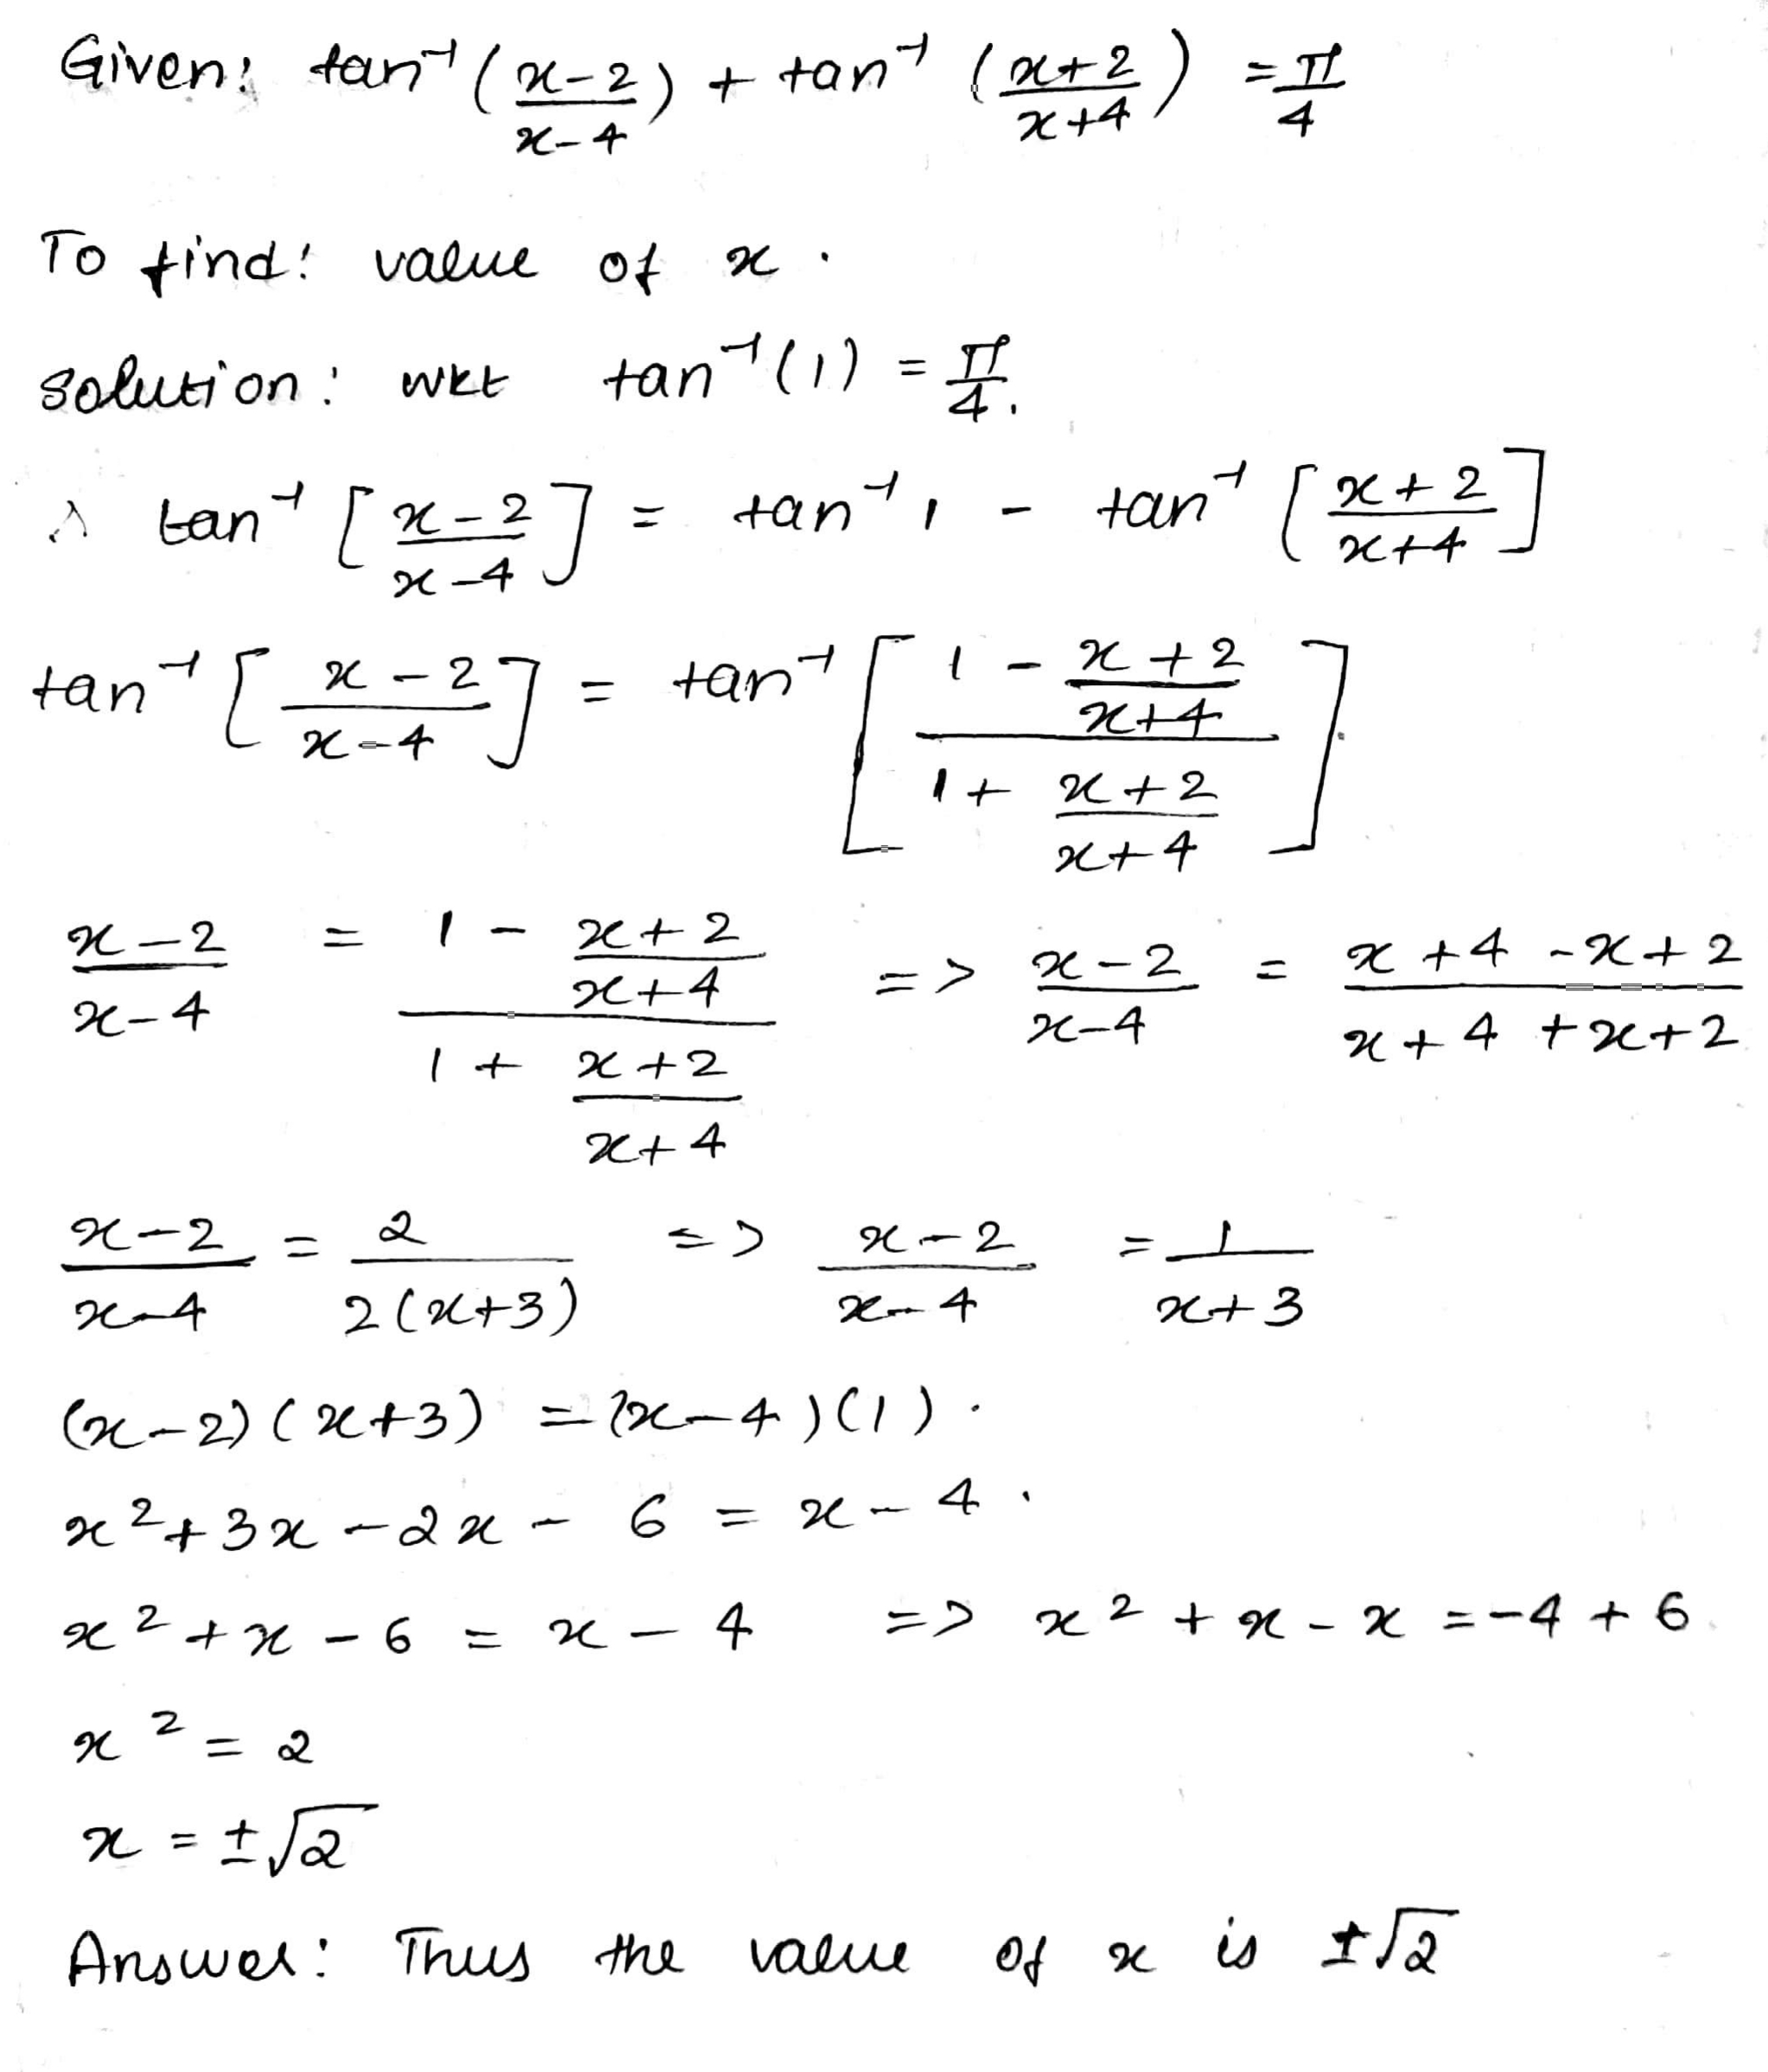 Given: tan⁻¹ (x-2/x-4) + tan⁻¹ (x+2/x+4) = π/4
To find: value of x.
Solution: WKT tan⁻¹(1) = π/4.
∴ tan⁻¹ [x-2/x-4] = tan⁻¹1 - tan⁻¹ [x+2/x+4]
tan⁻¹ [x-2/x-4] = tan⁻¹ [(1 - x+2/x+4)/(1 + x+2/x+4)]
x-2/x-4 = (1 - x+2/x+4)/(1 + x+2/x+4) => x-2/x-4 = x+4-x+2/x+4+x+2
x-2/x-4 = 2/2(x+3) => x-2/x-4 = 1/x+3
(x-2)(x+3) = (x-4)(1).
x²+3x-2x-6 = x-4.
x²+x-6 = x-4 => x²+x-x = -4+6
x² = 2
x = ±√2
Answer: Thus the value of x is ±√2